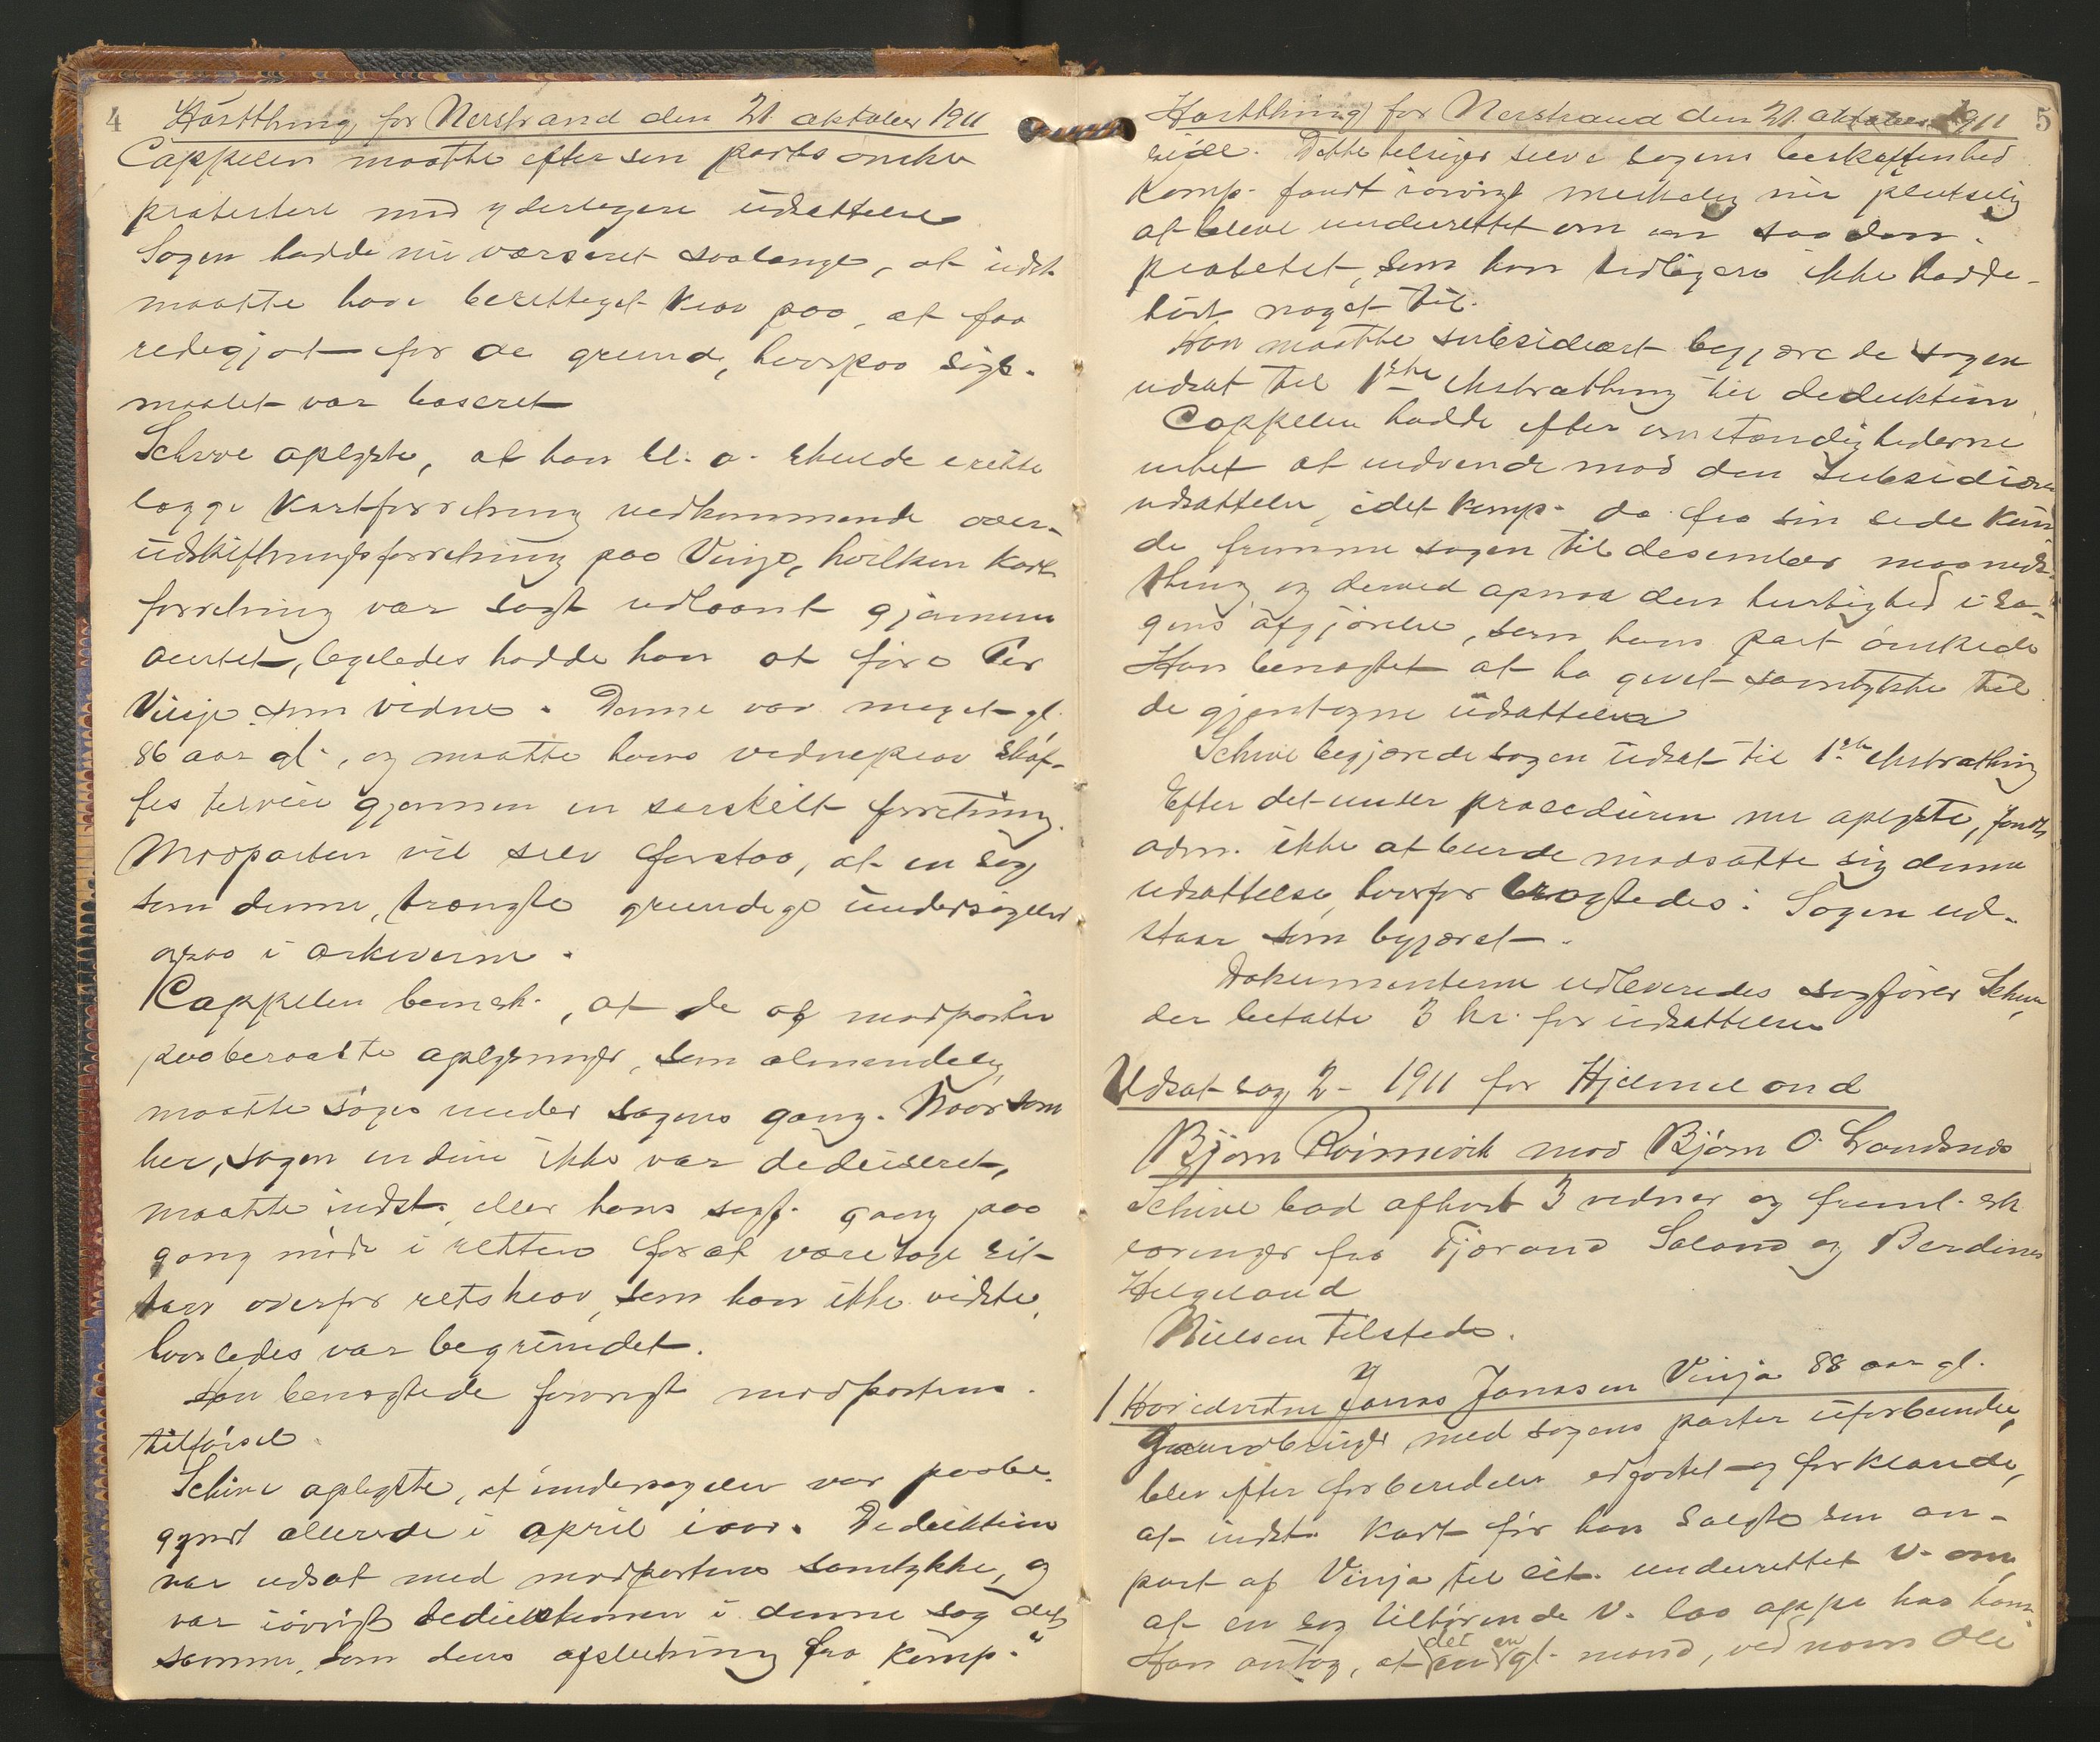 4 Høstthing for Nerstrand den 21. oktober 1911
Cappelen maatte efter sin parts ønske
protestere mod yderligere udsættelse
Sagen hadde nu verseret saalænge, at indst.
maatte have berettiget krav paa, at faa
redegjort for de grunde, hvorpaa søgs-
maalet var baseret
Schive oplyste, at han bl. a. skulde
lægge kartforretning vedkommende over-
udskiftningsforretning paa Vinje, hvilken kart
forretning var søgt udlaant gjennem
, ligeledes hadde han at føre Per
Vinje som vidne. Denne var meget gl.
86 aar gl., og maatte hans vidneprov skaf-
fes tilveie gjennem en særskilt forretning.
Modparten vil selv forstaa, at en sag
som denne, trængte grundige undersøgelser
ogsaa i arkiverne.
Cappelen bemerk., at de af modparten
paaberaabte oplysninger, som almindelig
maatte søges under sagens gang. Naar som
her, sagen endnu ikke var deduseret,
maatte indst. eller hans sagf. gang paa
gang møde i retten for at varetage sit
tarv overfor retskrav, som han ikke vidste,
hvorledes var begrundet.
Han benægtede forøvrigt modpartens
tilførsel
Schive oplyste, at undersøgelser var paabe-
gyndt allerede i april iaar. Deduktion
var udsat med modpartens samtykke, og
var iøvrigt deduktionen i denne sag det
samme, som dens afslutning fra komp.s
Høstthing for Nerstrand den 21. oktober 1911 5
side. Dette tilsiger selve sagens beskaffenhed
Komp. fandt iøvrigt merkelig nu pludselig
at bleve underrettet om en saadan
, som han tidligere ikke hadde
hørt noget til.
Han maatte subsidiært begjære de sagen
udsat til 1ste ekstrathing til deduktion.
Cappelen hadde efter omstændighederne
intet at indvende mod den subsidiære
udsættelse, idet komp. da fra sin side kun-
de fremme sagen til desember maaneds-
thing og derved opnaa den hurtighed i sa-
gens afgjørelse, som hans part ønskede
Han benægtet at ha givet samtykke til
de gjentagne udsættelser
Schive begjærede sagen udsat til 1ste ekstrathing
Efter det under proceduren nu oplyste, fandt
adm. ikke at burde modsætte sig denne
udsættelse, hvorfor eragtedes: Sagen ud-
staar som begjæret.
Dokumenterne udleveredes sagfører Schive,
der betalte 3 kr. for udsættelsen
Udsat sag 2 - 1911 for Hjelmeland
Bjørn Roimvik mod Bjørn O. Landsnes
Schive bad afhørt 3 vidner og freml. erk
læringer fra Tjerand Saland og Berdines
Helgeland
Nielsen tilstede.
1 Hovedvidne Jonas Jonassen Vinja 88 aar gl.
Gaardbruger, med sagens parter uforbunden,
blev efter forberedelse edfæstet og forklarede,
at indst. kort før han solgte sin an-
part af Vinja til cit. underrettet v. om,
at en sag tilhørende v. laa oppe hos ham.
Han antog, at det en gl. mand, ved navn Ole